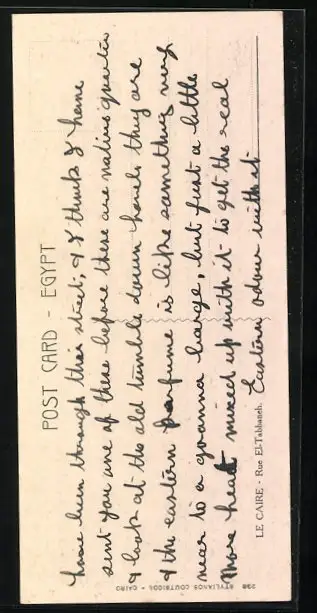 POST CARD - EGYPT
have been through this street, & I think I have
sent you one of these before these are native quarters
& look at the old tumble down hovels they are
& the eastern perfume is like something very
near to a guanna barge, but just a little
More heat mixed up with it to get the real
Eastern odour with it
LE CAIRE - Rue El-Tabbaneh.
238 STYLIANOS COUTRICOS - CAIRO